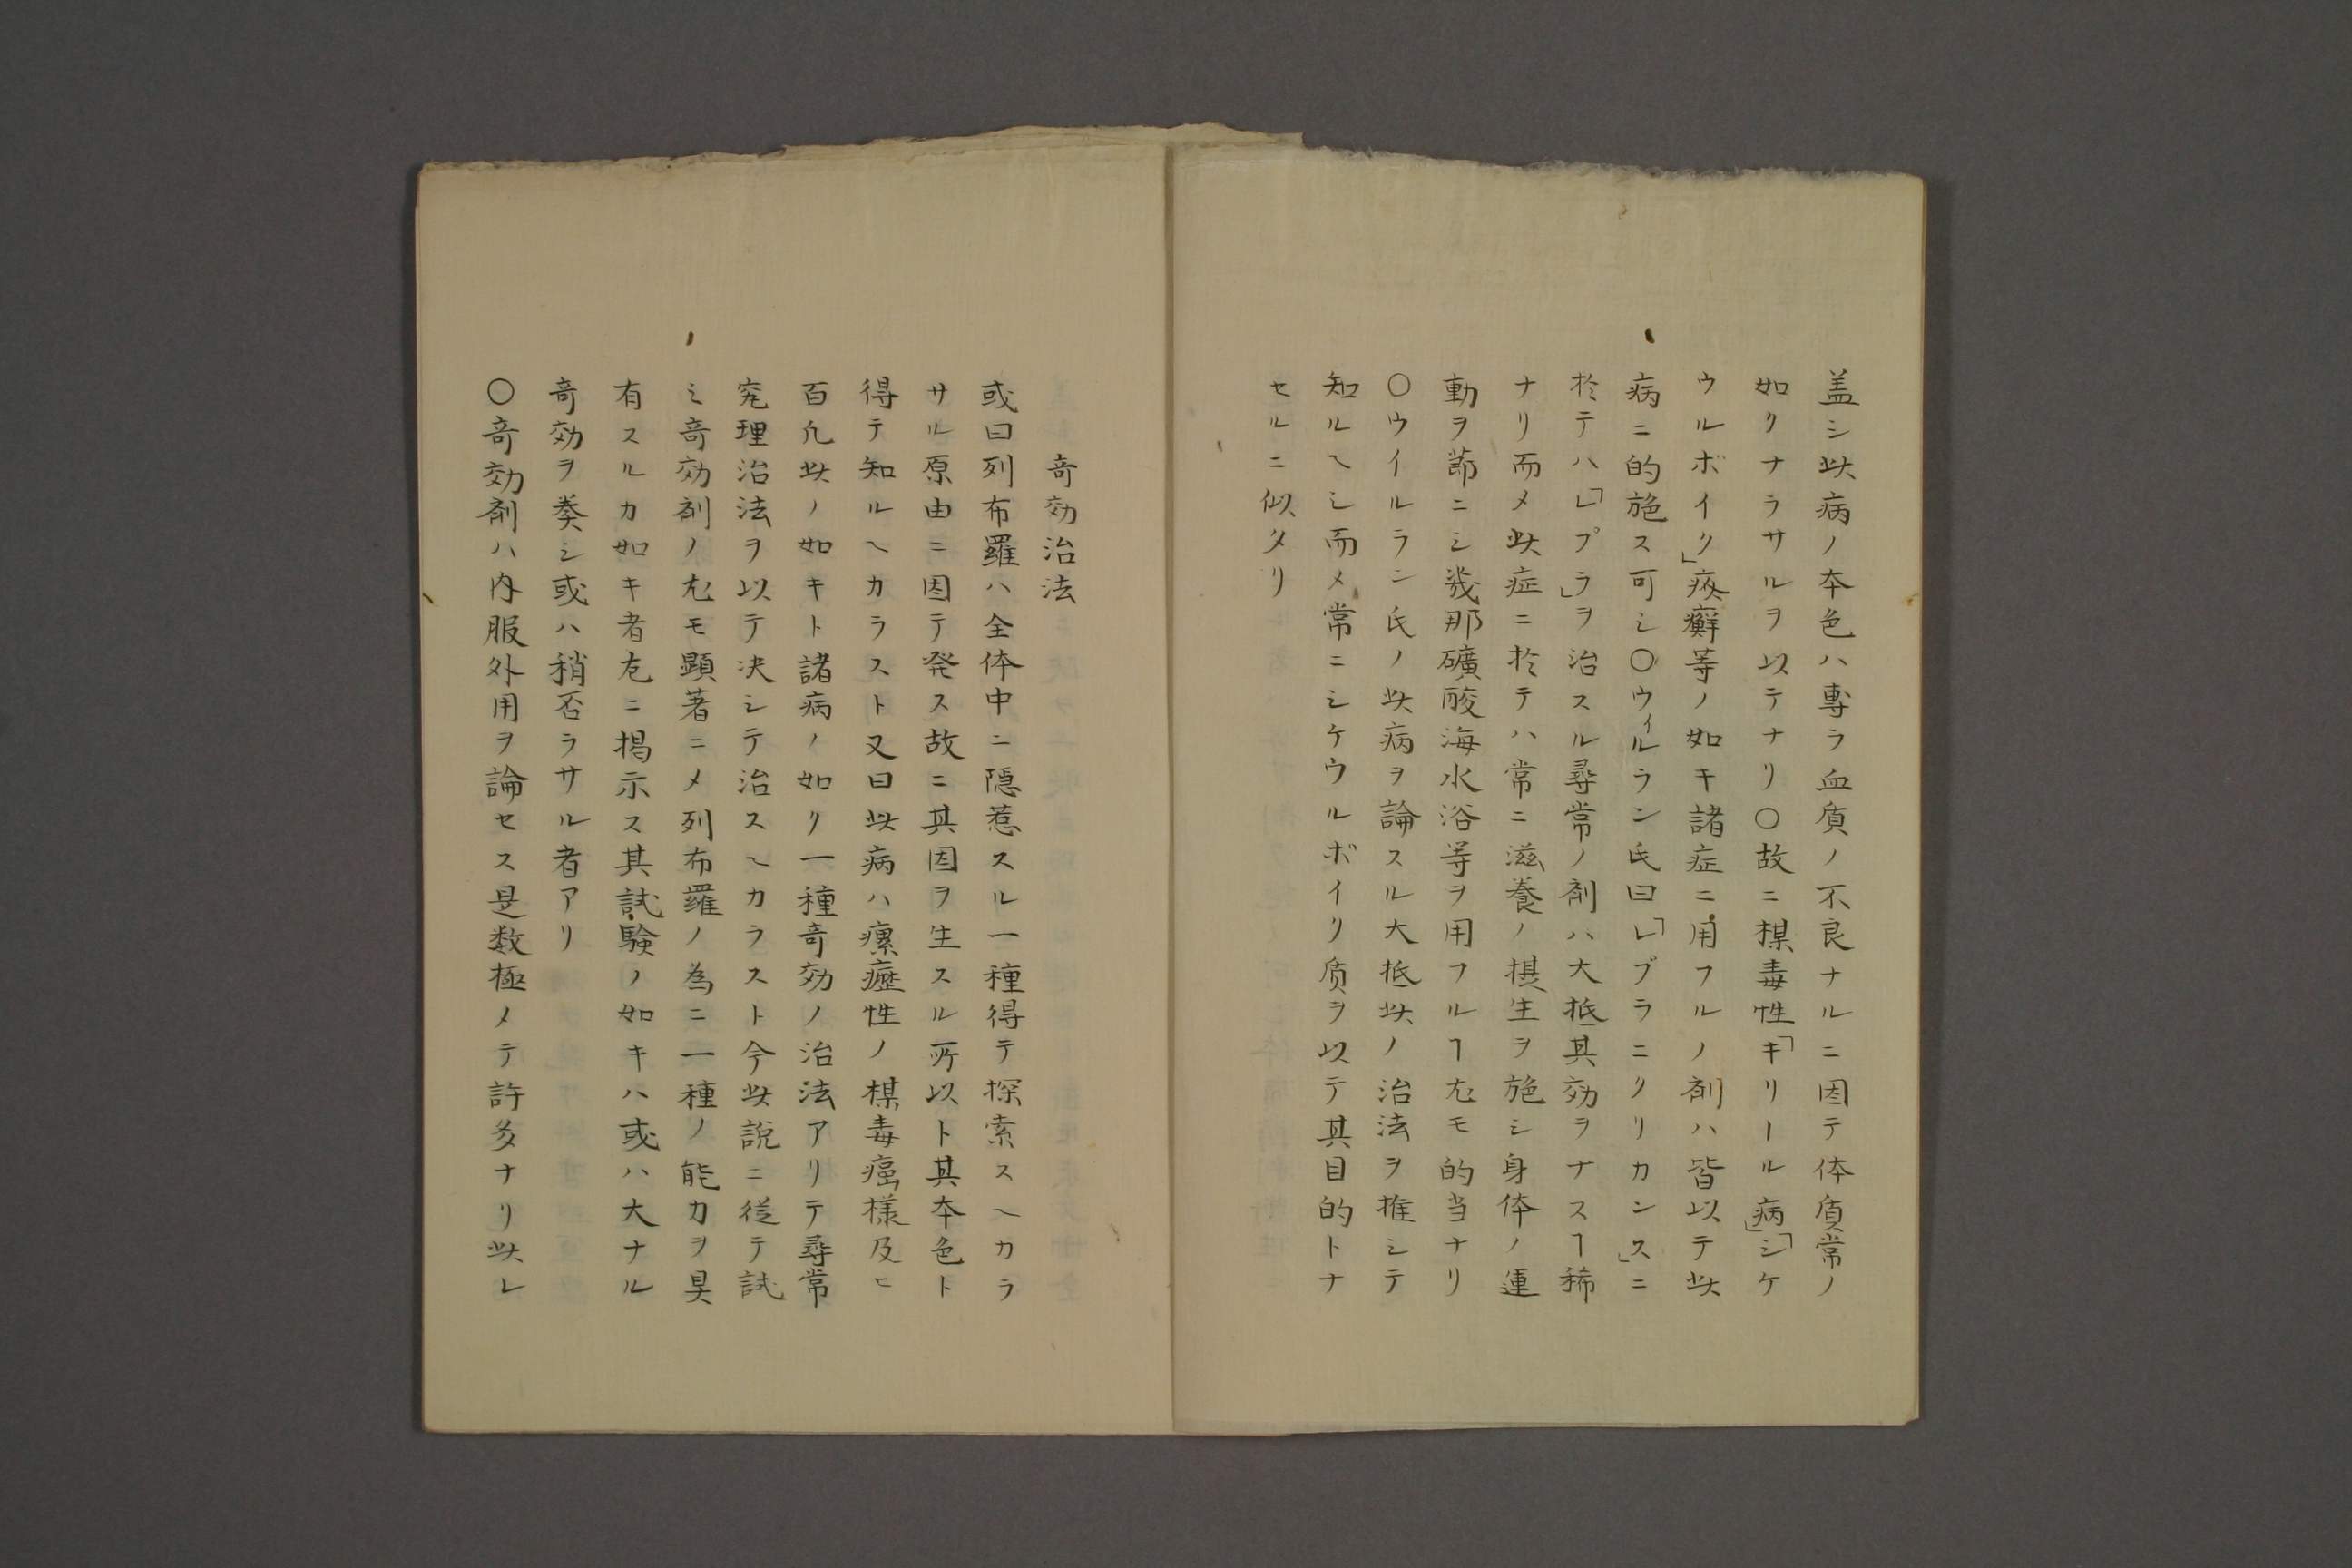 盖シ此病ノ本色ハ専ラ血質ノ不良ナルニ因テ体質常ノ
如クナラサルヲ以テナリ〇故ニ楳毒性「キリール病」「シケ
ウルボイク」疥癬等ノ如キ諸症ニ用フルノ剤ハ皆以テ此
病ニ的施ス可シ〇ウイルラン氏曰「レブラニクリカンス」ニ
於テハ「レプラ」ヲ治スル尋常ノ剤ハ大抵其効ヲナスヿ稀
ナリ而メ此症ニ於テハ常ニ滋養ノ摂生ヲ施シ身体ノ運
動ヲ節ニシ幾那礦酸海水浴等ヲ用フルヿ尤モ的当ナリ
〇ウイルラン氏ノ此病ヲ論スル大抵此ノ治法ヲ推シテ
知ルヘシ而メ常ニシケウルボイリ质ヲ以テ其目的トナ
セルニ似タリ
奇効治法
或曰列布羅ハ全体中ニ隠惹スル一種得テ探索スヘカラ
サル原由ニ因テ発ス故ニ其因ヲ生スル所以ト其本色ト
得テ知ルヘカラスト又曰此病ハ瘰癧性ノ楳毒癌様及ヒ
百凢此ノ如キト諸病ノ如ク一種奇効ノ治法アリテ尋常
究理治法ヲ以テ决シテ治スヘカラスト今此説ニ従テ試
ミ奇効剤ノ尤モ顕著ニメ列布羅ノ為ニ一種ノ能力ヲ具
有スルカ如キ者左ニ掲示ス其試験ノ如キハ或ハ大ナル
奇効ヲ奏シ或ハ稍否ラサル者アリ
〇奇効剤ハ内服外用ヲ論セス是数極メテ許多ナリ此レ